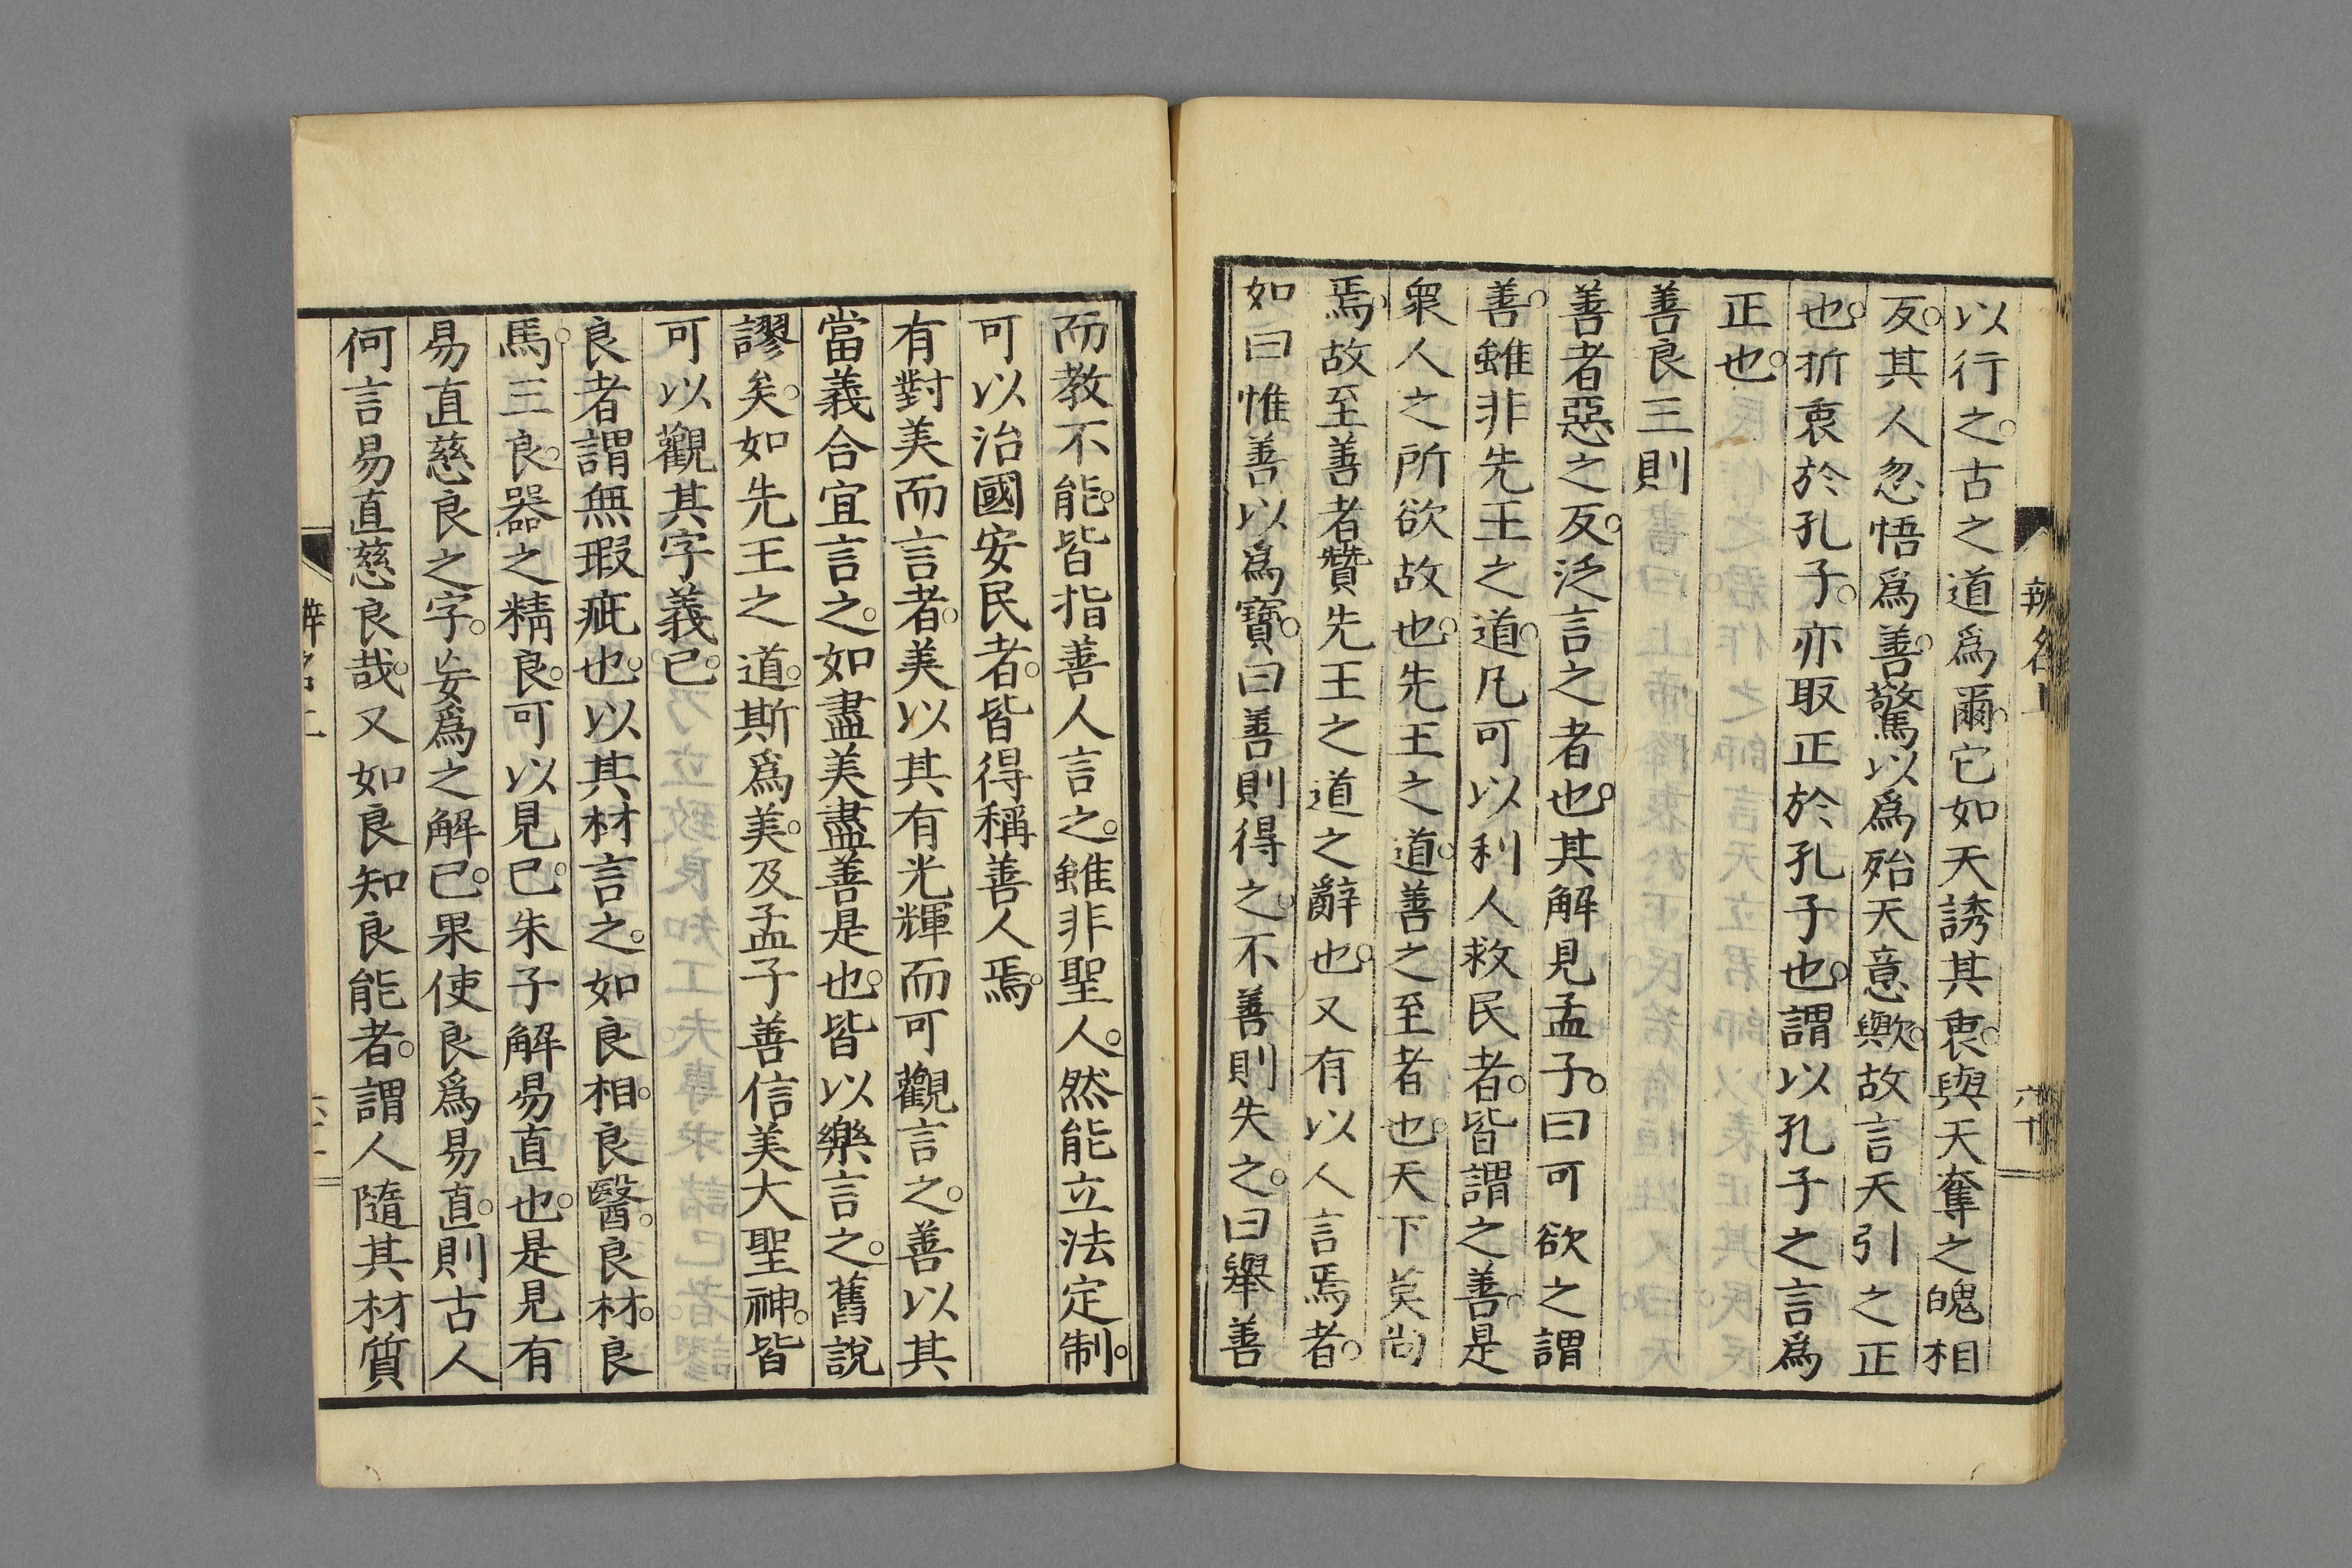 辨名上
六十
以行之。古之道爲爾。它如天誘其衷。與天奪之魄相
反。其人忽悟爲善。驚以爲殆天意歟。故言天引之正
也。折衷於孔子。亦取正於孔子也。謂以孔子之言爲
正也。
善良三則
善者惡之反。泛言之者也。其解見孟子。曰可欲之謂
善。雖非先王之道。凡可以利人救民者。皆謂之善。是
衆人之所欲故也。先王之道。善之至者也。天下莫尚
焉。故至善者贊先王之道之辭也。又有以人言焉者。
如曰惟善以爲寶。曰善則得之。不善則失之。曰舉善
而教不能。皆指善人言之。雖非聖人。然能立法定制。
可以治國安民者。皆得稱善人焉。
有對美而言者。美以其有光輝而可觀言之。善以其
當義合宜言之。如盡美盡善是也。皆以樂言之。舊說
謬矣。如先王之道。斯爲美。及孟子善信美大聖神。皆
可以觀其字義已。
良者謂無瑕疵也。以其材言之。如良相。良醫。良材。良
馬。三良。器之精良。可以見已。朱子解易直也。是見有
易直慈良之字。妄爲之解已。果使良爲易直。則古人
何言易直慈良哉。又如良知良能者。謂人隨其材質